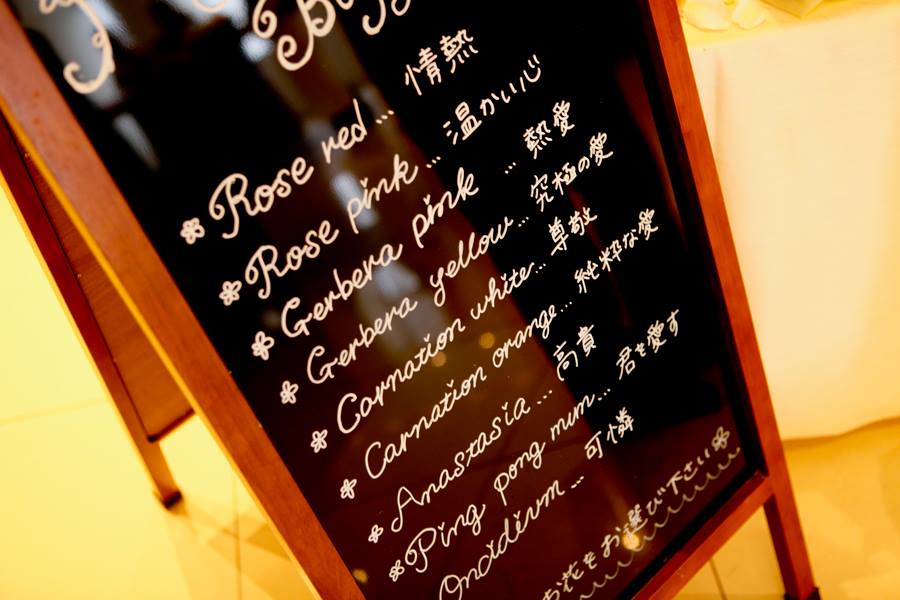 Rose red... 情熱
Rose pink... 温かい心
Gerbera pink ... 熱愛
Gerbera yellow... 究極の愛
Carnation white... 尊敬
Carnation orange... 純粋な愛
Anastasia... 高貴
Ping pong mum... 君を愛す
Oncidium... 可憐
お花をお選び下さい